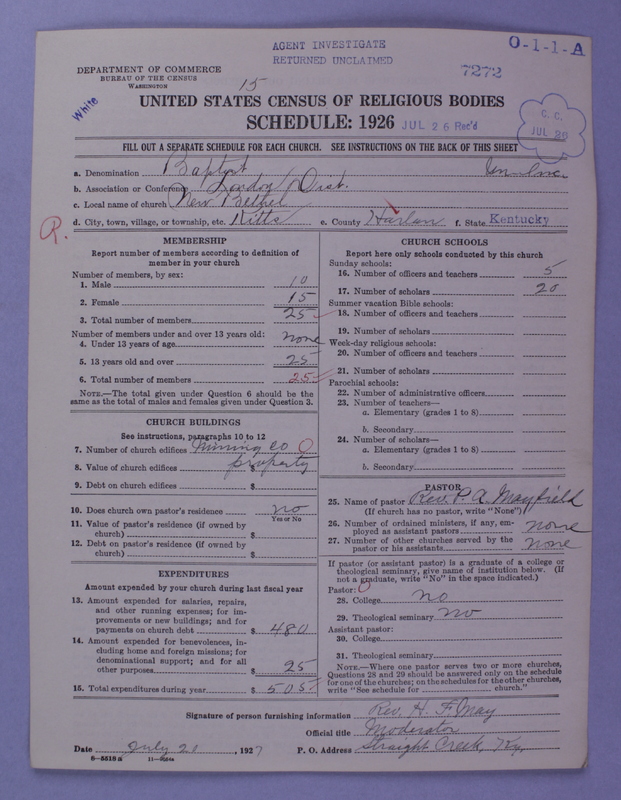 AGENT INVESTIGATE
RETURNED UNCLAIMED
O-1-1-A
7272
DEPARTMENT OF COMMERCE
BUREAU OF THE CENSUS
WASHINGTON
15
White
UNITED STATES CENSUS OF RELIGIOUS BODIES
SCHEDULE: 1926
JUL 26 Rec'd
C. C.
JUL 26
FILL OUT A SEPARATE SCHEDULE FOR EACH CHURCH. SEE INSTRUCTIONS ON THE BACK OF THIS SHEET
a. Denomination Baptist
b. Association or Conference London Dist.
c. Local name of church New Bethel
d. City, town, village, or township, etc. Kitts e. County Harlan f. State Kentucky
R.
MEMBERSHIP
Report number of members according to definition of
member in your church
Number of members, by sex:
1. Male 10
2. Female 15
3. Total number of members 25
Number of members under and over 13 years old:
4. Under 13 years of age none
5. 13 years old and over 25
6. Total number of members 25
NOTE.—The total given under Question 6 should be the
same as the total of males and females given under Question 3.
CHURCH BUILDINGS
See instructions, paragraphs 10 to 12
7. Number of church edifices Mining Co 0
8. Value of church edifices $ property
9. Debt on church edifices $
10. Does church own pastor's residence no
Yes or No
11. Value of pastor's residence (if owned by
church) $
12. Debt on pastor's residence (if owned by
church) $
EXPENDITURES
Amount expended by your church during last fiscal year
13. Amount expended for salaries, repairs,
and other running expenses; for im-
provements or new buildings; and for
payments on church debt $ 480
14. Amount expended for benevolences, in-
cluding home and foreign missions; for
denominational support; and for all
other purposes $ 25
15. Total expenditures during year $ 505
CHURCH SCHOOLS
Report here only schools conducted by this church
Sunday schools:
16. Number of officers and teachers 5
17. Number of scholars 20
Summer vacation Bible schools:
18. Number of officers and teachers
19. Number of scholars
Week-day religious schools:
20. Number of officers and teachers
21. Number of scholars
Parochial schools:
22. Number of administrative officers
23. Number of teachers—
a. Elementary (grades 1 to 8)
b. Secondary
24. Number of scholars—
a. Elementary (grades 1 to 8)
b. Secondary
PASTOR
25. Name of pastor Rev. P. A. Mayfield
(If church has no pastor, write "None")
26. Number of ordained ministers, if any, em-
ployed as assistant pastors none
27. Number of other churches served by the
pastor or his assistants none
If pastor (or assistant pastor) is a graduate of a college or
theological seminary, give name of institution below. (If
not a graduate, write "No" in the space indicated.)
Pastor: 0
28. College no
29. Theological seminary no
Assistant pastor:
30. College
31. Theological seminary
NOTE.—Where one pastor serves two or more churches,
Questions 28 and 29 should be answered only on the schedule
for one of the churches; on the schedules for the other churches,
write "See schedule for church."
Signature of person furnishing information Rev. H. F. May
Official title Moderator
Date July 20, 1927 P. O. Address Straight Creek, Ky.